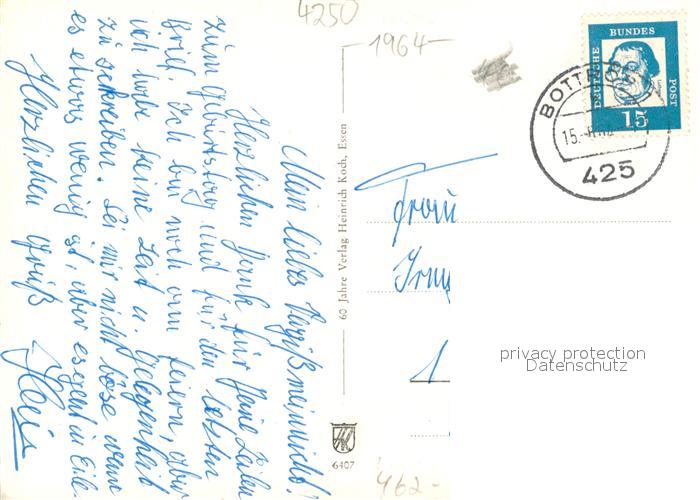 4250
1964
Mein liebes Vergißmeinnicht!
Herzlichen Dank für Deine Zeilen
zum Geburtstag und für den letzten
Brief. Ich bin noch am feiern, aber
ich habe keine Zeit u. Gelegenheit
zu schreiben. Sei mir nicht böse wenn
es etwas wenig ist, aber es geht in Eile.
Herzlichen Gruß
60 Jahre Verlag Heinrich Koch, Essen
6407
DEUTSCHE BUNDES POST
15
BOTTROP
425
Frau
privacy protection
Datenschutz
462-